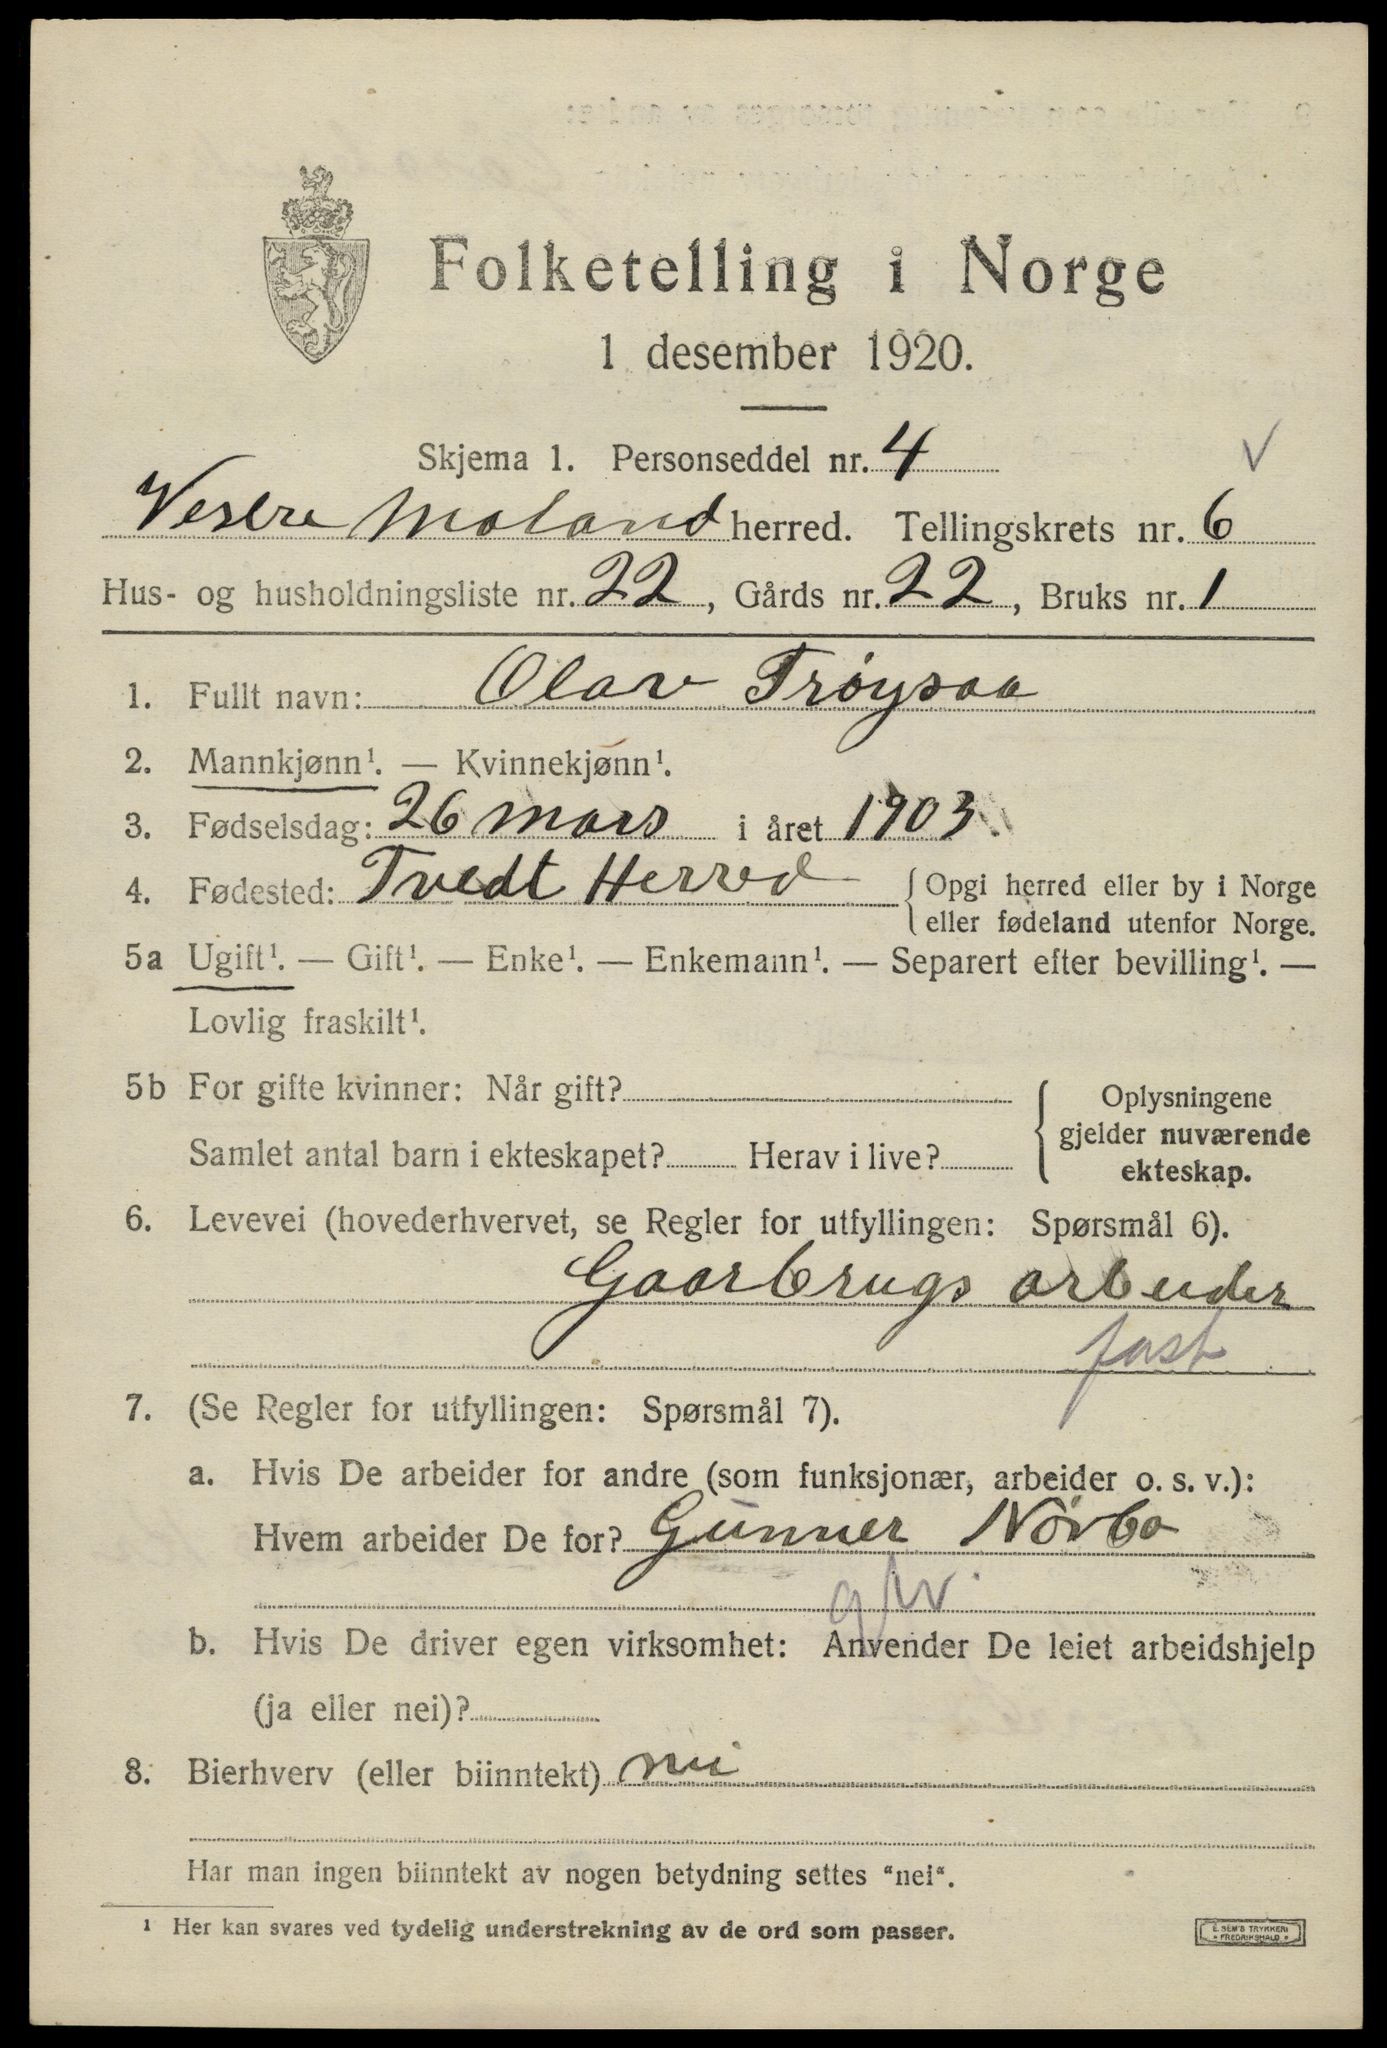 Folketelling i Norge
1 desember 1920.
Skjema 1. Personseddel nr. 4
Vestre Moland herred. Tellingskrets nr. 6
Hus- og husholdningsliste nr. 22, Gårds nr. 22, Bruks nr. 1
1. Fullt navn: Olav Trøysaa
2. Mannkjønn¹. — Kvinnekjønn¹.
3. Fødselsdag: 26 mars i året 1903
4. Fødested: Tvedt Herred { Opgi herred eller by i Norge
eller fødeland utenfor Norge.
5a Ugift¹. — Gift¹. — Enke¹. — Enkemann¹. — Separert efter bevilling¹. —
Lovlig fraskilt¹.
5b For gifte kvinner: Når gift? { Oplysningene
gjelder nuværende
Samlet antal barn i ekteskapet? Herav i live?
ekteskap.
6. Levevei (hovederhvervet, se Regler for utfyllingen: Spørsmål 6).
Gaarbrugs arbeider
fast
7. (Se Regler for utfyllingen: Spørsmål 7).
a. Hvis De arbeider for andre (som funksjonær, arbeider o. s. v.):
Hvem arbeider De for? Gunner Nörbo
b. Hvis De driver egen virksomhet: Anvender De leiet arbeidshjelp
(ja eller nei)?
8. Bierhverv (eller biinntekt) nei
Har man ingen biinntekt av nogen betydning settes "nei".
¹ Her kan svares ved tydelig understrekning av de ord som passer.
E. SEM'S TRYKKERI
• FREDRIKSHALD •